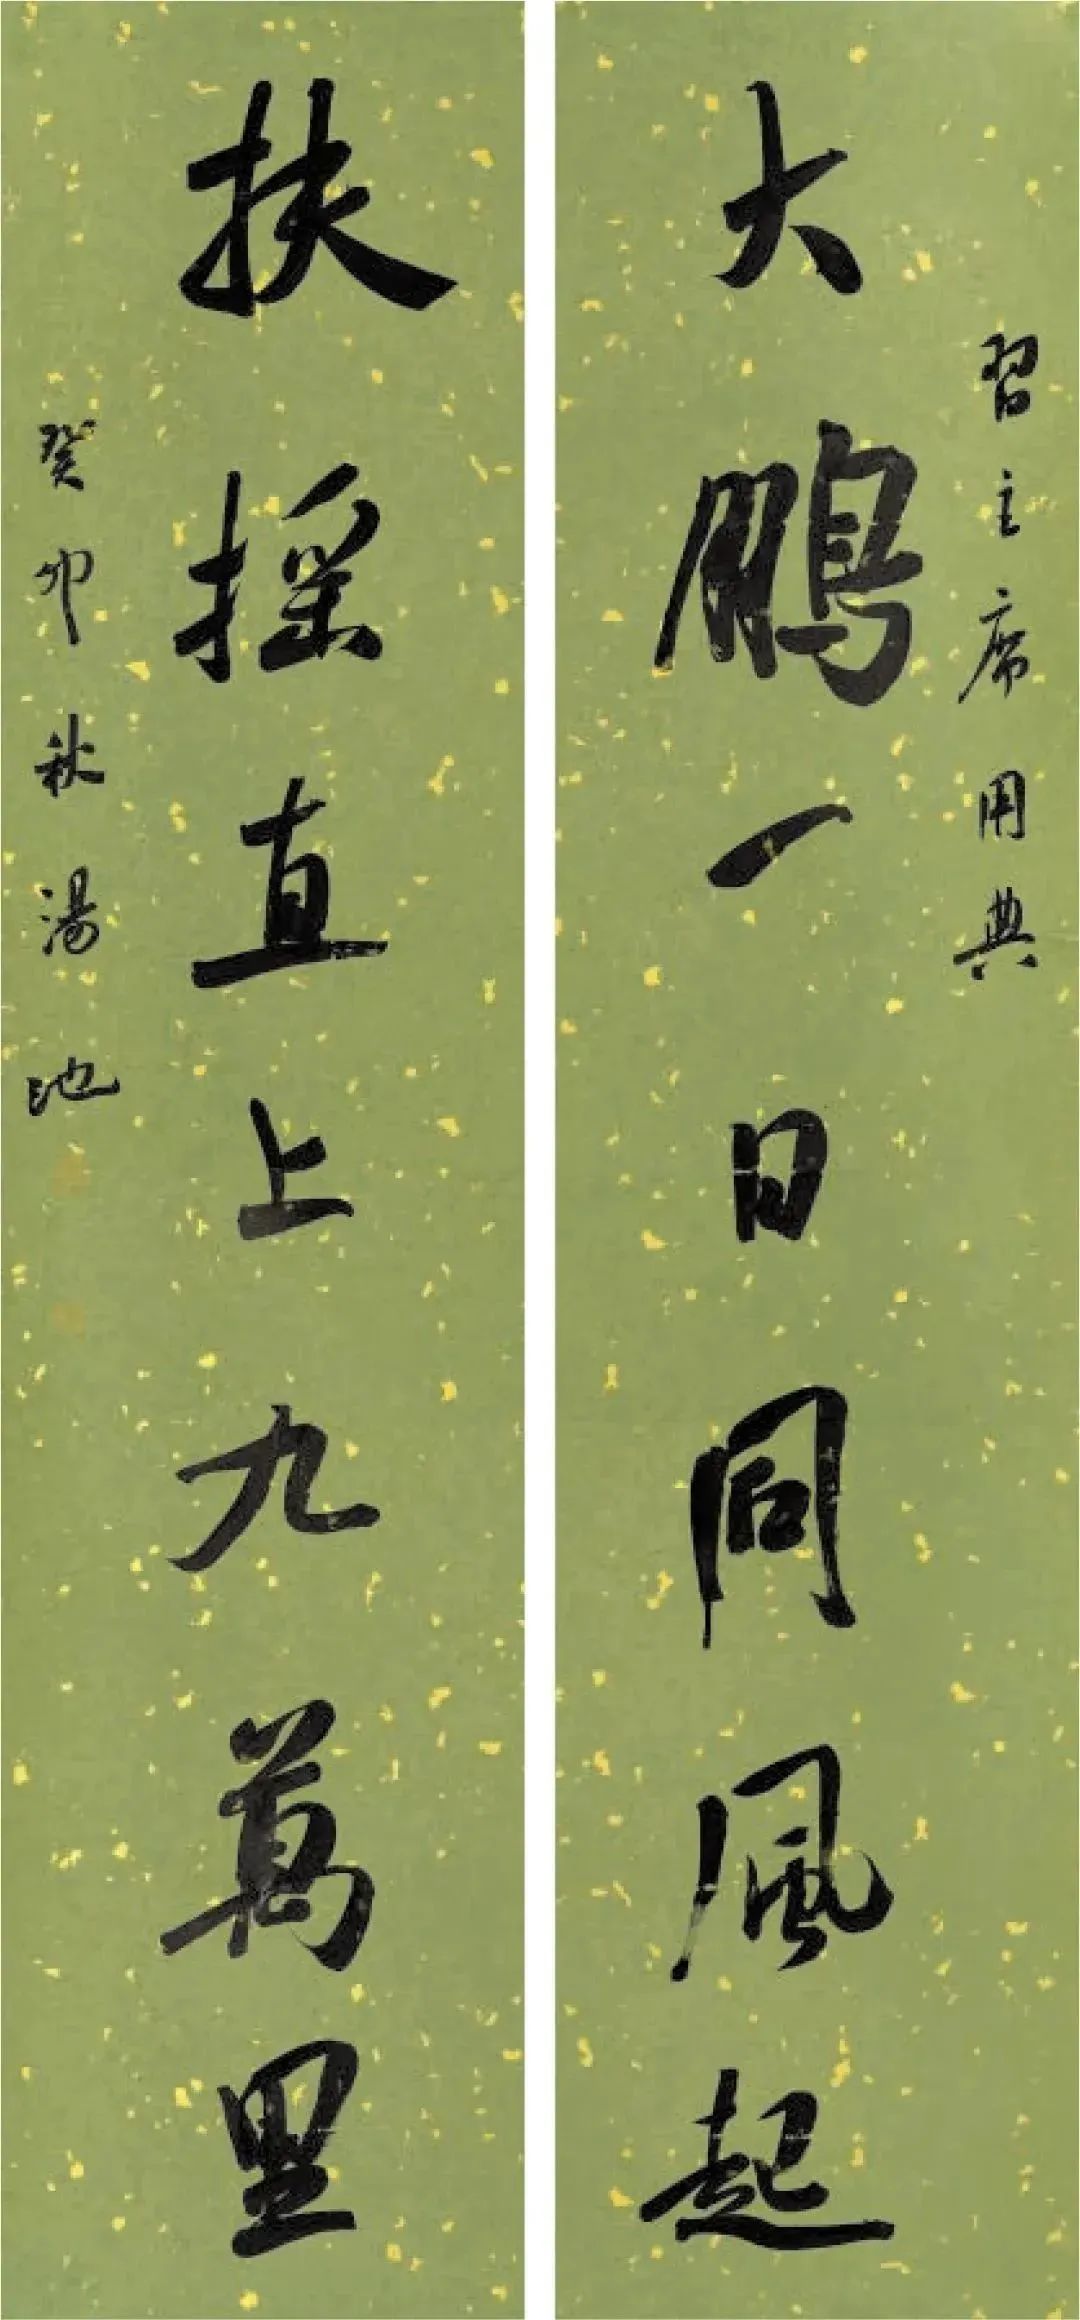 習主席用典
大鵬一日同風起
扶摇直上九萬里
癸卯秋湯池